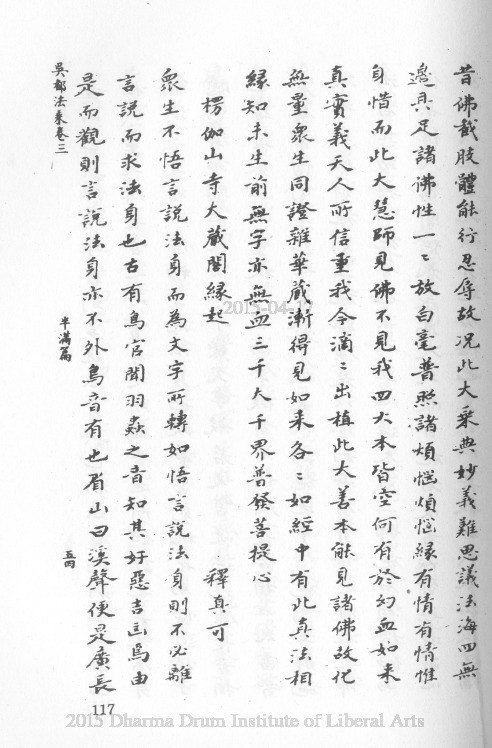 昔佛截肢體能行忍辱故况此大乘典妙義難思議法海四無
邊具足諸佛性一一放白毫普照諸煩惱煩惱緣有情有情惟
身惜而此大慧師見佛不見我四大本皆空何有於幻血如来
真實義天人所信重我今滴滴出植此大善本能見諸佛故化
無量衆生同證雜華藏漸得見如来各各如經中有此真法相
緣知未生前無字亦無血三千大千界普發菩提心
楞伽山寺大藏閣緣起 釋真可
衆生不悟言說法身而為文字所轉如悟言說法身則不必離
言說而求法身也古有鳥官聞羽蟲之音知其好惡吉凶焉由
是而觀則言說法身亦不外鳥音有也眉山曰溪聲便是廣長
吳都法乘卷三 半滿篇 五四
117
2015-04-17
2015 Dharma Drum Institute of Liberal Arts